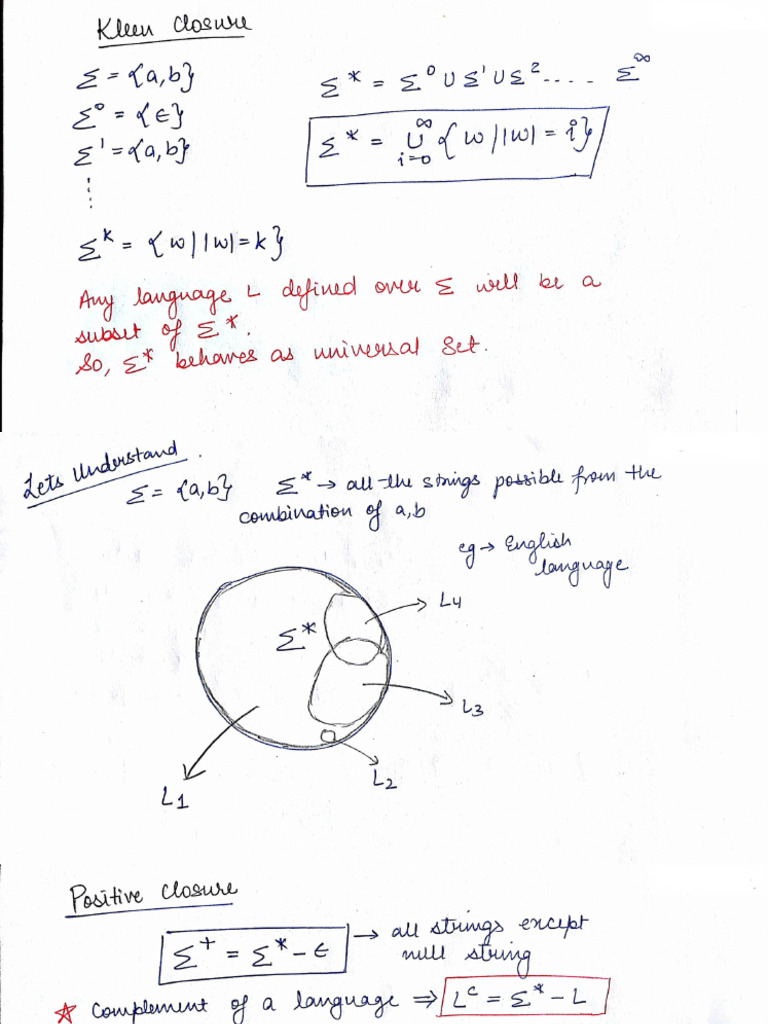 Kleen closure
Σ = {a,b}
Σ⁰ = {ϵ}
Σ¹ = {a,b}
⋮
Σᵏ = {w | |w| = k}
Σ* = Σ⁰ ∪ Σ¹ ∪ Σ² .... Σ^∞
Σ* = ∪_{i=0}^{∞} {w | |w| = i}
Any language L defined over Σ will be a
subset of Σ*.
So, Σ* behaves as universal set.
Lets Understand.
Σ = {a,b} Σ* → all the strings possible from the
combination of a,b
eg → English
language
Σ*
L4
L3
L2
L1
Positive closure
Σ⁺ = Σ* - ϵ → all strings except
null string
☆ Complement of a language ⇒ Lᶜ = Σ* - L